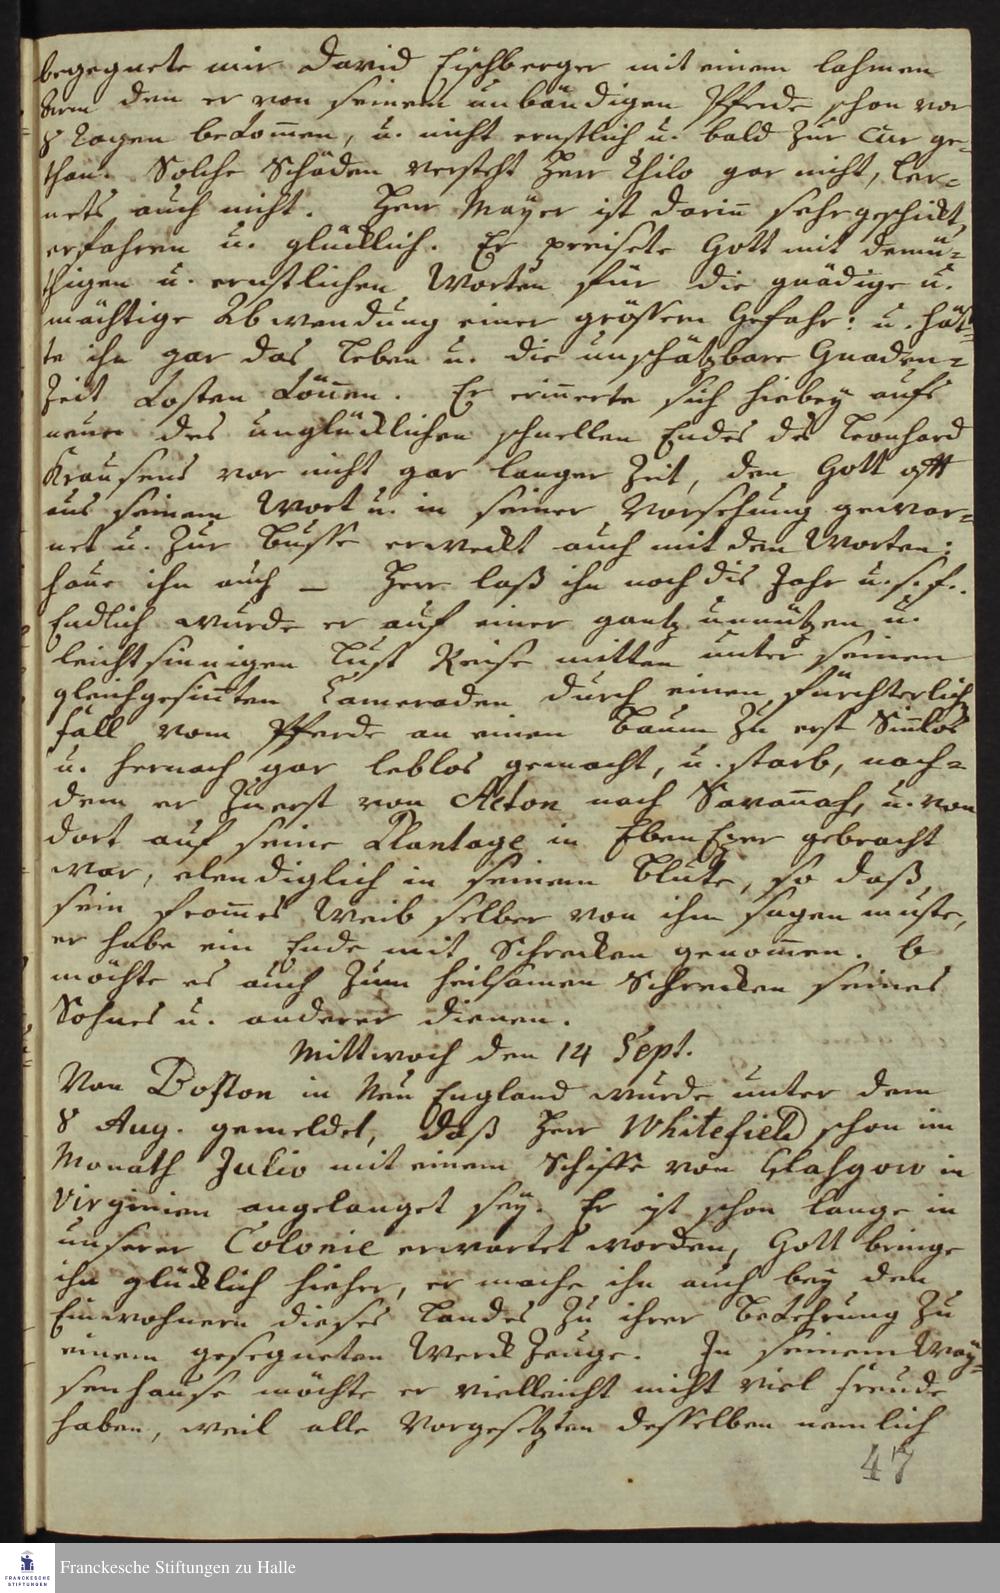 begegnete mir David Eischberger mit einem lahmen
Arm den er von seinem unbändigen Pferde schon vor
8 Tagen bekom̄en, u. nicht ernstlich u. bald zur Cur ge-
than. Solche Schäden versteht Herr Thilo gar nicht, ler-
nets auch nicht. Herr Mayer ist darin̄ sehr geschickt,
erfahren u. glücklich. Er preisete Gott mit demü-
thigen u. ernstlichen Worten für die gnädige u.
mächtige Abwendung einer grössern Gefahr: u. hät-
te ihn gar das Leben u. die unschätzbare Gnaden-
Zeit kosten kön̄en. Er erin̄erte sich hiebey aufs
neue des unglücklichen schnellen Endes des Leonhard
Krausens vor nicht gar langer Zeit, den Gott offt
aus seinem Wort u. in seiner Vorsehung gewar-
net u. zur Busse erweckt auch mit den Worten:
haue ihn auch — Herr laß ihn noch dis Jahr u.s.f..
Endlich wurde er auf einer gantz unnützen u.
leichtsinnigen Lust Reise mitten unter seinen
gleichgesin̄ten Cameraden durch einen fürchterlich
Fall vom Pferde an einen Baum zu erst Sin̄los
u. hernach gar leblos gemacht, u. starb, nach-
dem er zuerst von Acton nach Savan̄ah, u. von
dort auf seine Plantage in EbenEzer gebracht
war, elendiglich in seinem Blute, so daß,
sein from̄es Weib selber von ihm sagen muste,
er habe ein Ende mit Schrecken genom̄en. O
möchte es auch zum heilsamen Schrecken seines
Sohnes u. anderer dienen.
Mittwoch den 14 Sept.
Von Boston in Neu England wurde unter dem
8 Aug. gemeldet, daß Herr Whitefield schon im
Monath Julio mit einem Schiffe von Glasgow in
Virginien angelanget sey. Er ist schon lange in
unserer Colonie erwartet worden, Gott bringe
ihn glücklich hieher, er mache ihn auch bey den
Einwohnern dieses Landes zu ihrer Bekehrung zu
einem gesegneten Werckzeuge. In seinem Way-
senhause möchte er vielleicht nicht viel Freude
haben, weil alle Vorgesetzten desselben nemlich
47
FRANCKESCHE
STIFTUNGEN
Franckesche Stiftungen zu Halle